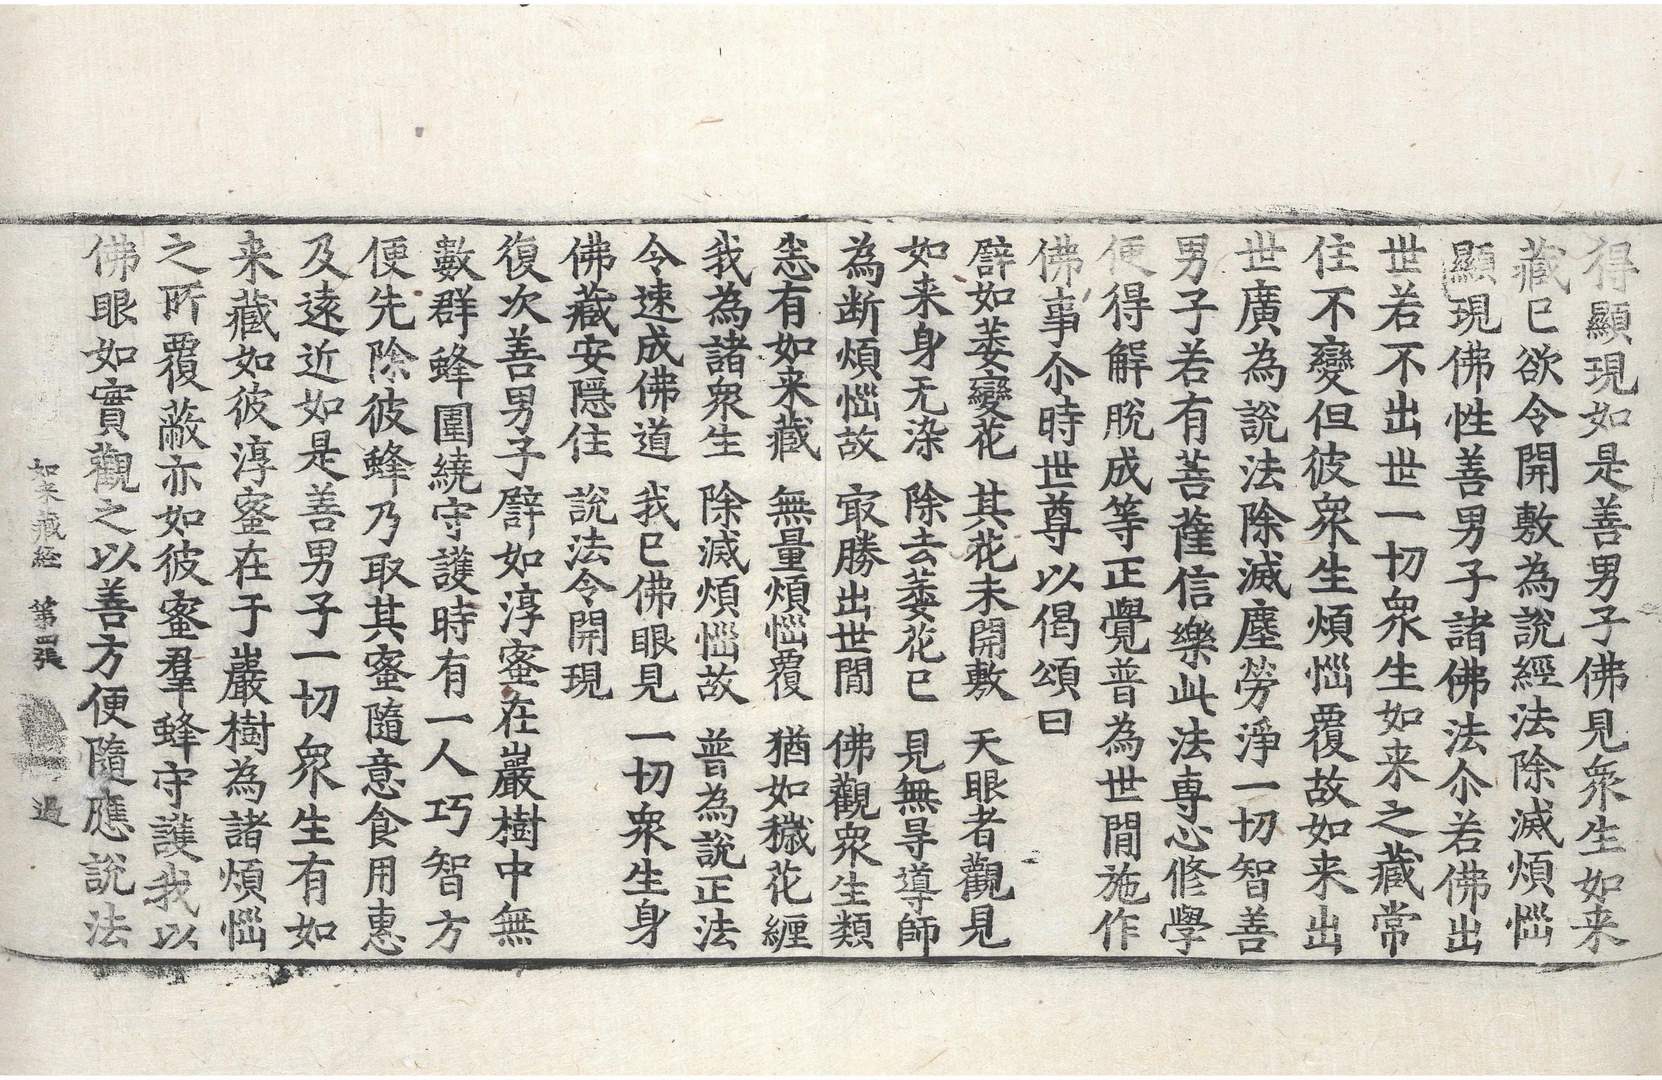 得顯現如是善男子佛見衆生如来
藏已欲令開敷為說經法除滅煩惱
顯現佛性善男子諸佛法尒若佛出
世若不出世一切衆生如来之藏常
住不變但彼衆生煩惱覆故如来出
世廣為說法除滅塵勞淨一切智善
男子若有菩薩信樂此法專心修學
便得解脫成等正覺普為世間施作
佛事尒時世尊以偈頌曰
譬如萎變花 其花未開敷 天眼者觀見
如来身无染 除去萎花已 見無导導師
為断煩惱故 㝡勝出世間 佛觀衆生類
悉有如来藏 無量煩惱覆 猶如穢花纏
我為諸衆生 除滅煩惱故 普為說正法
令速成佛道 我已佛眼見 一切衆生身
佛藏安隱住 說法令開現
復次善男子譬如淳蜜在巖樹中無
數群蜂圍繞守護時有一人巧智方
便先除彼蜂乃取其蜜隨意食用惠
及遠近如是善男子一切衆生有如
来藏如彼淳蜜在于巖樹為諸煩惱
之所覆蔽亦如彼蜜羣蜂守護我以
佛眼如實觀之以善方便隨應說法
如来藏經 第四張 過